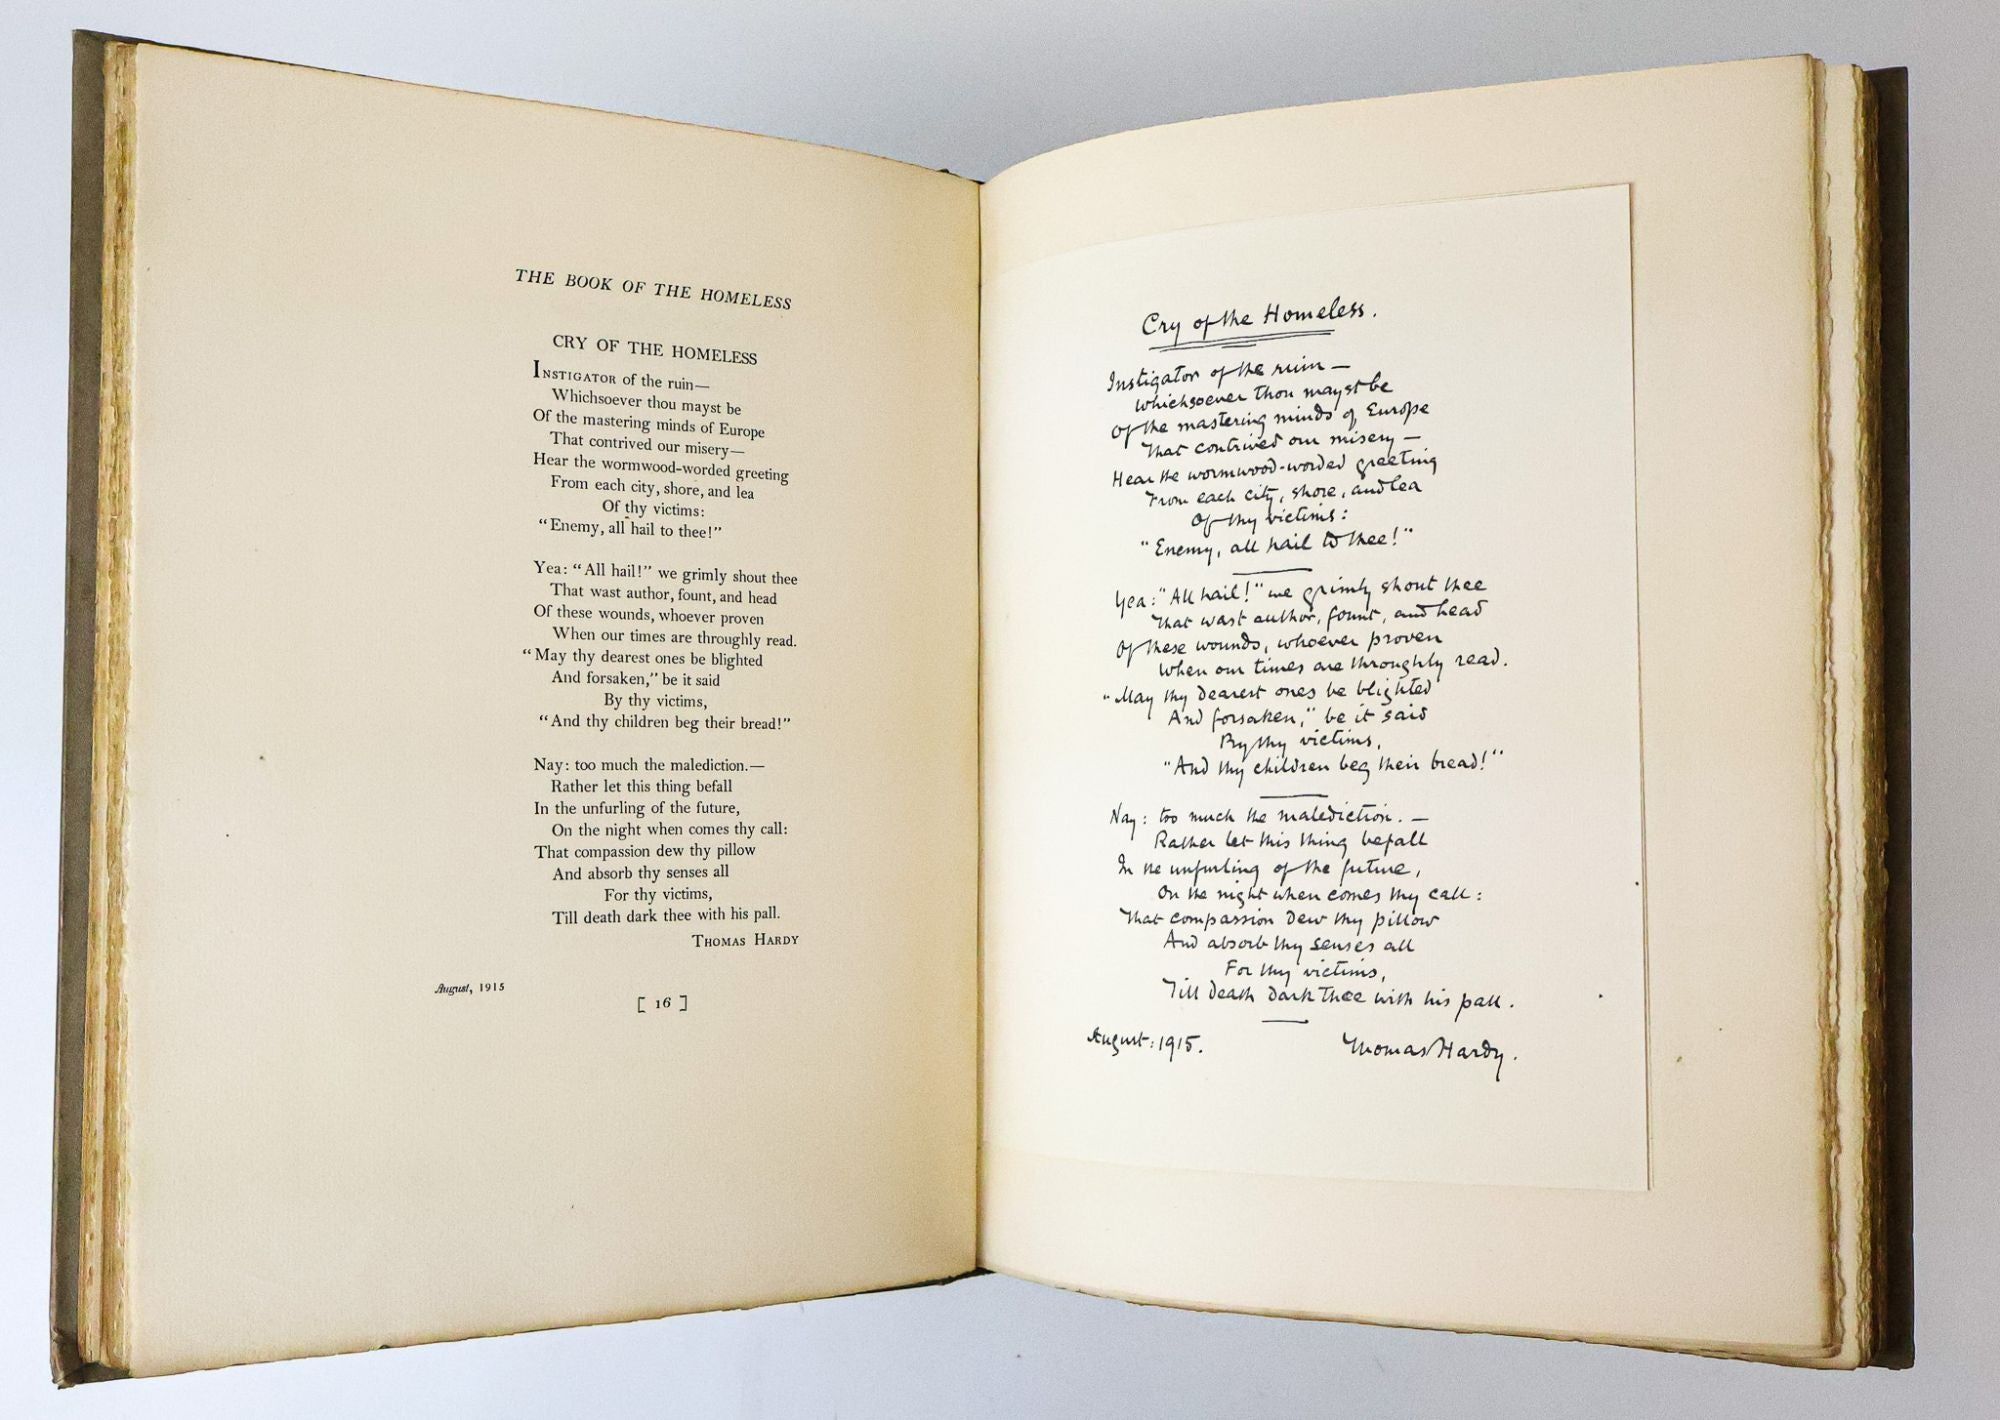 THE BOOK OF THE HOMELESS
CRY OF THE HOMELESS
INSTIGATOR of the ruin—
Whichsoever thou mayst be
Of the mastering minds of Europe
That contrived our misery—
Hear the wormwood-worded greeting
From each city, shore, and lea
Of thy victims:
"Enemy, all hail to thee!"
Yea: "All hail!" we grimly shout thee
That wast author, fount, and head
Of these wounds, whoever proven
When our times are throughly read.
"May thy dearest ones be blighted
And forsaken," be it said
By thy victims,
"And thy children beg their bread!"
Nay: too much the malediction.—
Rather let this thing befall
In the unfurling of the future,
On the night when comes thy call:
That compassion dew thy pillow
And absorb thy senses all
For thy victims,
Till death dark thee with his pall.
THOMAS HARDY
August, 1915
[ 16 ]
Cry of the Homeless.
Instigator of the ruin—
Whichsoever thou mayst be
Of the mastering minds of Europe
That contrived our misery—
Hear the wormwood-worded greeting
From each city, shore, and lea
Of thy victims:
"Enemy, all hail to thee!"
Yea: "All hail!" we grimly shout thee
That wast author, fount, and head
Of these wounds, whoever proven
When our times are throughly read.
"May thy dearest ones be blighted
And forsaken," be it said
By thy victims,
"And thy children beg their bread!"
Nay: too much the malediction.—
Rather let this thing befall
In the unfurling of the future,
On the night when comes thy call:
That compassion dew thy pillow
And absorb thy senses all
For thy victims,
Till death dark thee with his pall.
August: 1915.
Thomas Hardy.